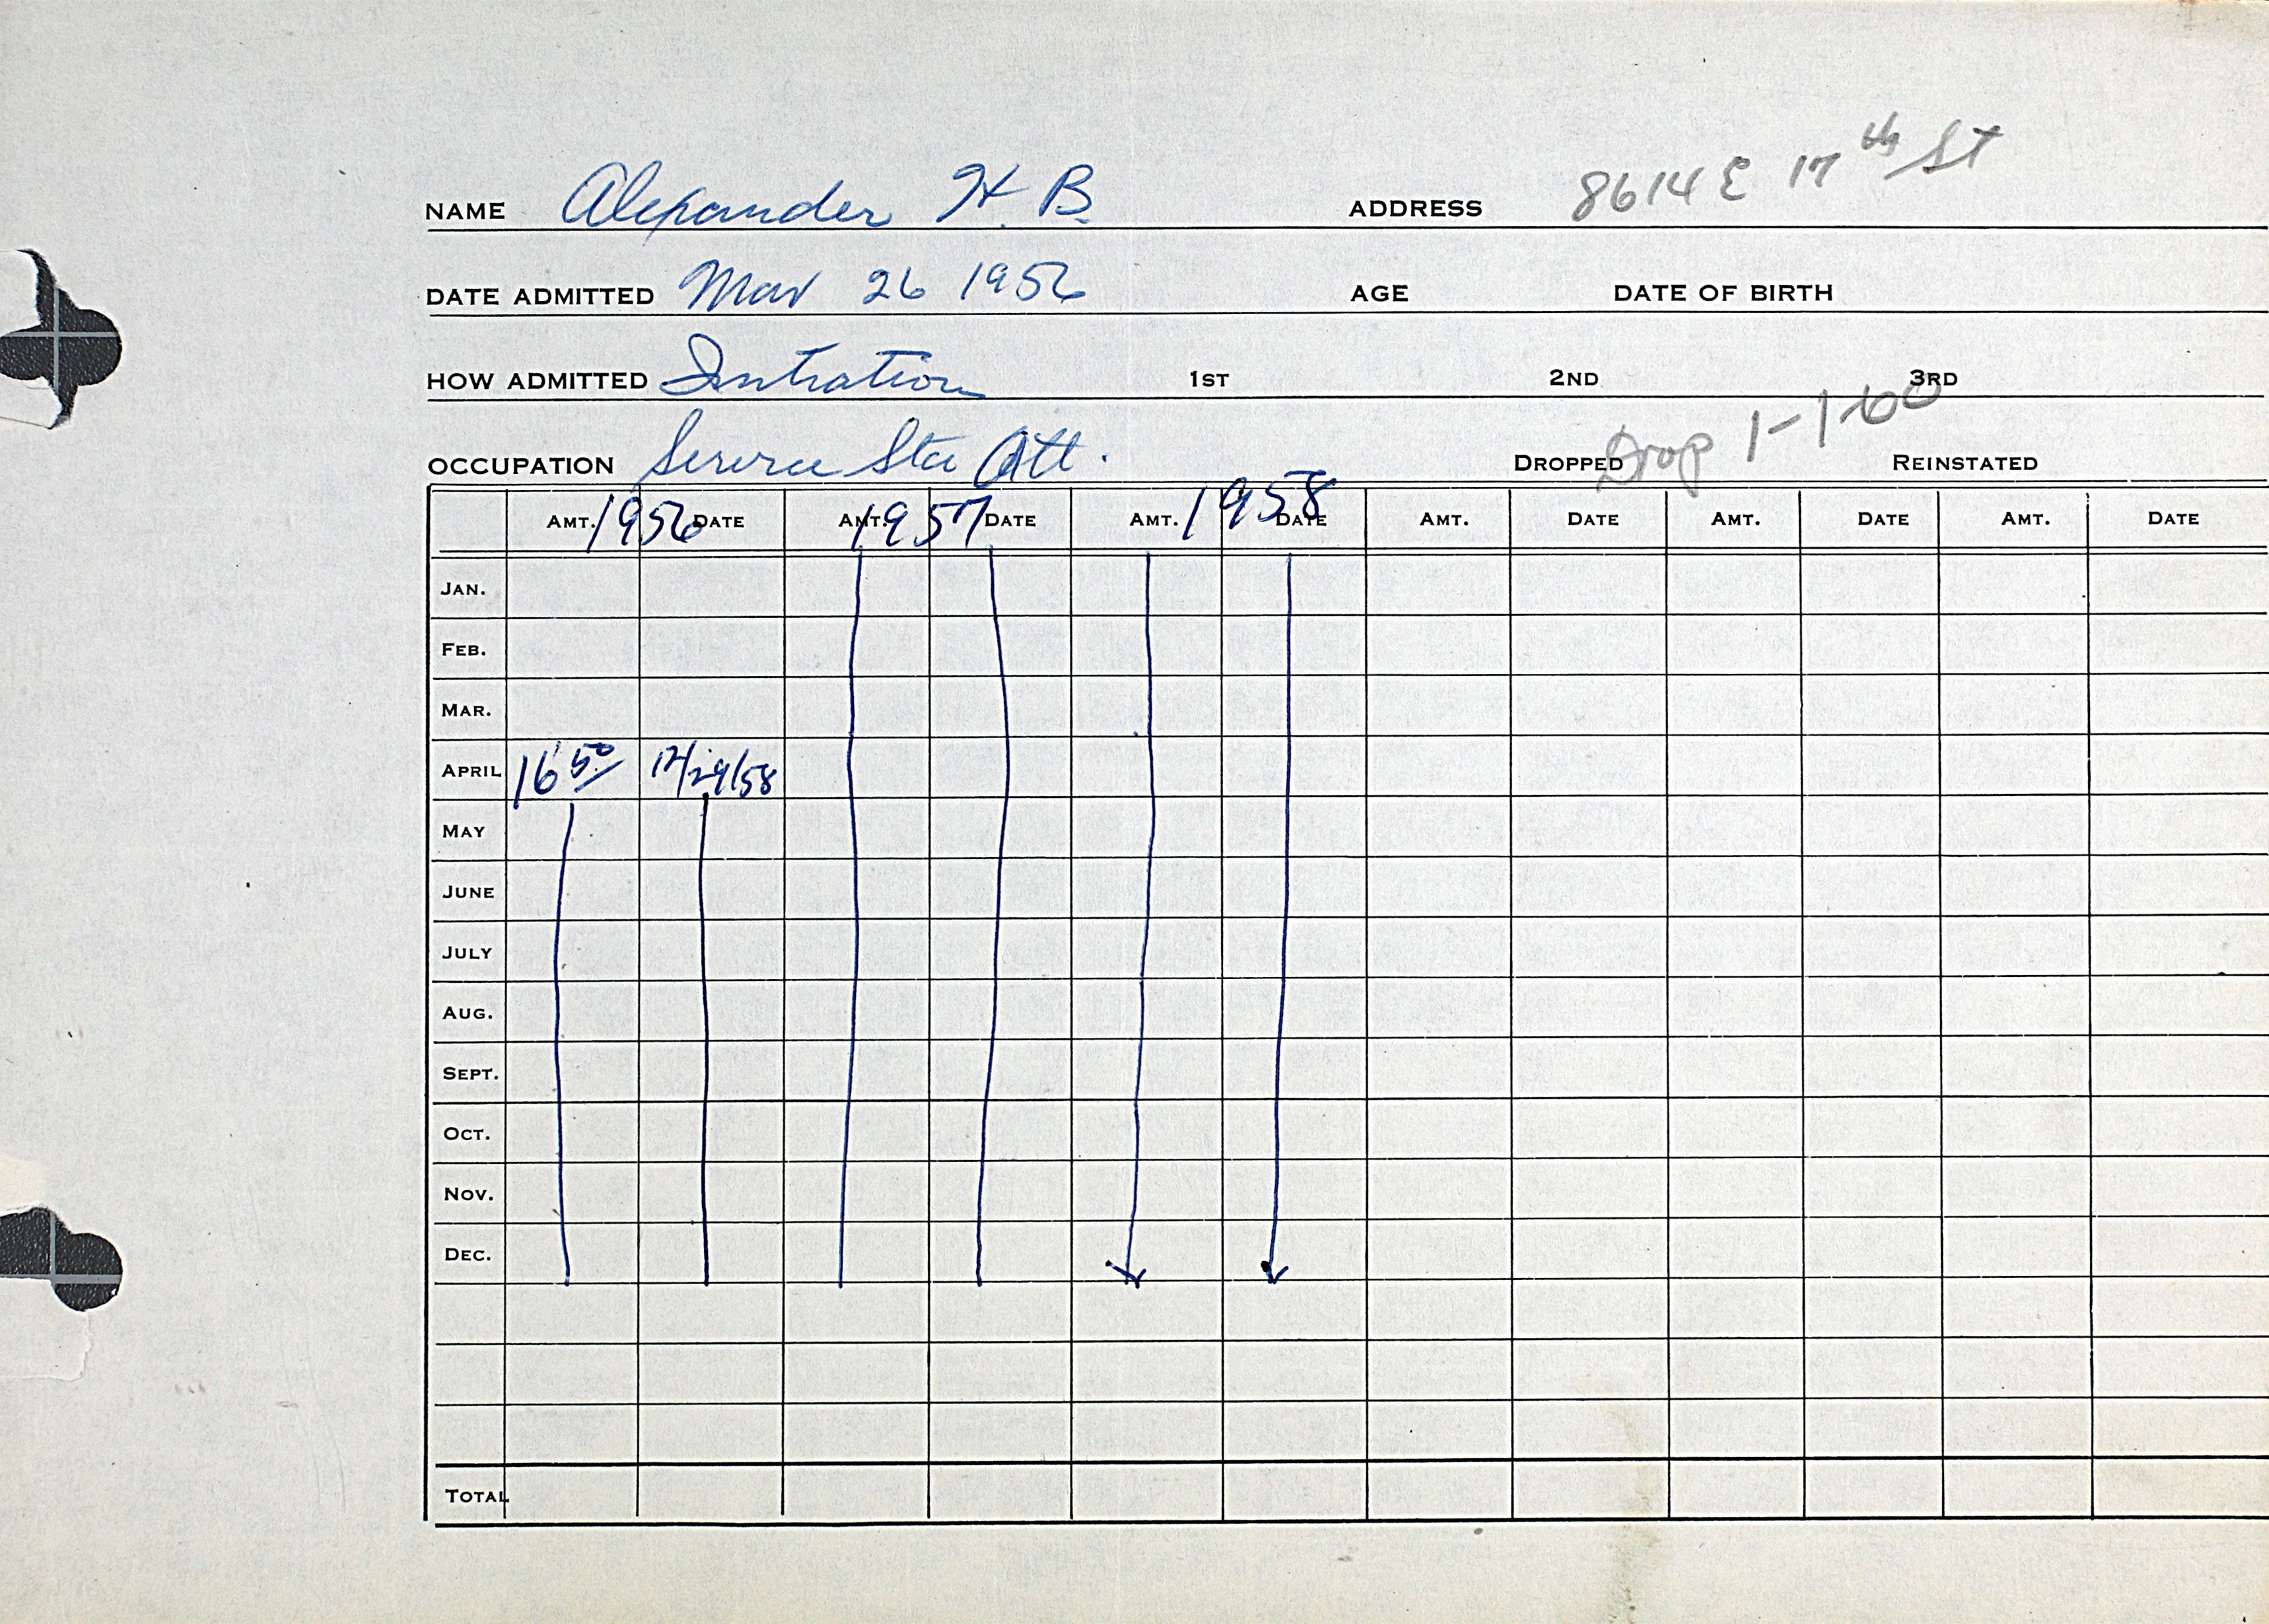 NAME Alexander H. B. ADDRESS 8614 E 17th St
DATE ADMITTED Mar 26 1956 AGE DATE OF BIRTH
HOW ADMITTED Intiation 1ST 2ND 3RD
OCCUPATION Service Sta Att. DROPPED Drop 1-1-60 REINSTATED
1956 1957 1958
AMT. DATE AMT. DATE AMT. DATE AMT. DATE AMT. DATE AMT. DATE
JAN.
FEB.
MAR.
APRIL 16 50 12/29/58
MAY
JUNE
JULY
AUG.
SEPT.
OCT.
NOV.
DEC.
TOTAL